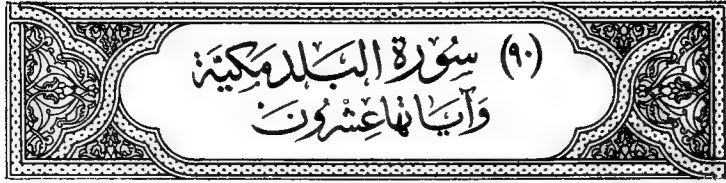 (٩٠) سُورَة البَلَد مَكِيَّة
وَآيَاتهَا عِشْرُونَ